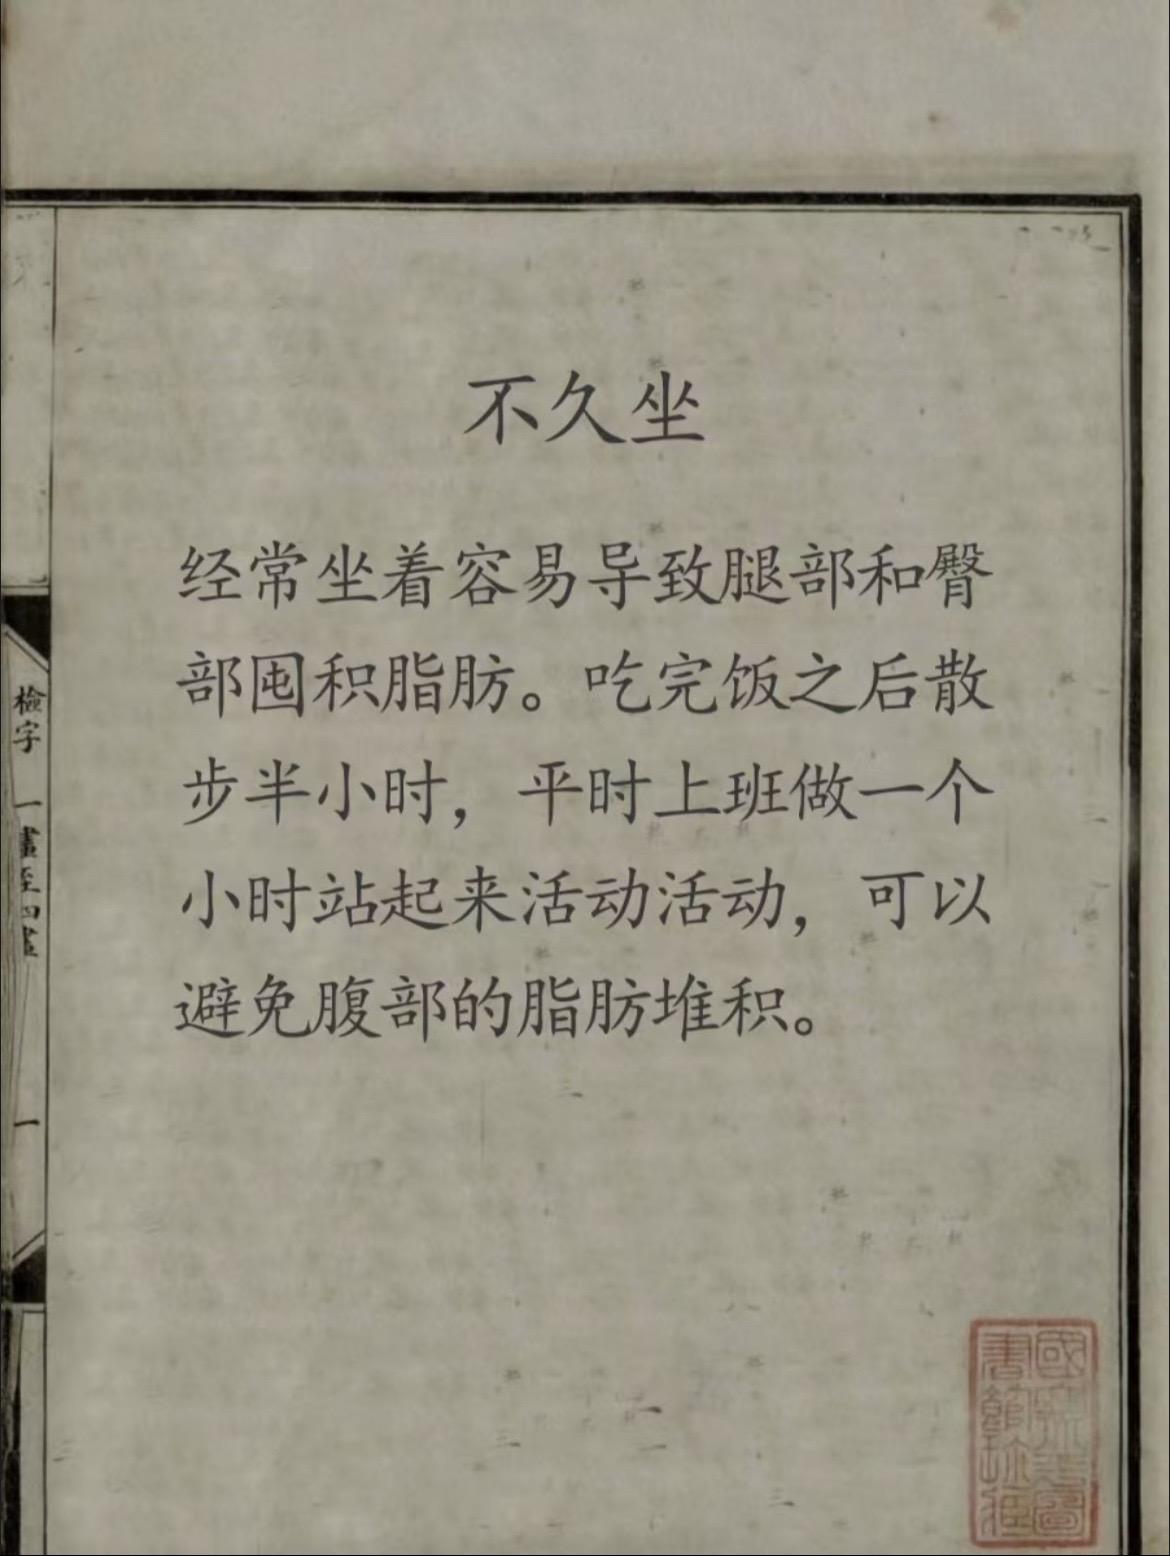 不久坐
经常坐着容易导致腿部和臀
部囤积脂肪。吃完饭之后散
步半小时，平时上班做一个
小时站起来活动活动，可以
避免腹部的脂肪堆积。
檢字
一畫至四畫
一